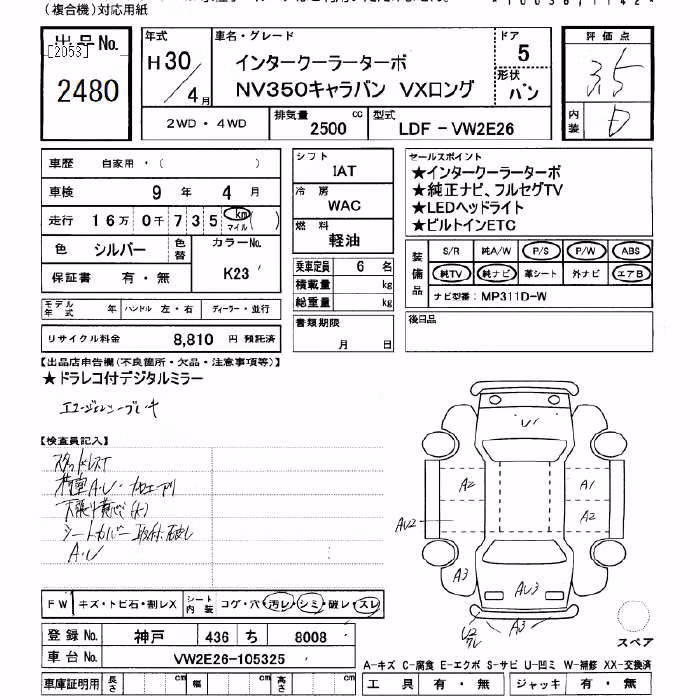 (複合機)対応用紙
出品No.
[2053]
2480
年式
H30/4月
車名・グレード
インタークーラーターボ
NV350キャラバン VXロング
ドア
5
形状
バン
評価点
3.5
内装
D
2WD・4WD
排気量
2500 cc
型式
LDF-VW2E26
車歴 自家用・( )
車検 9年 4月
走行 16万0千735 km マイル ( )
色 シルバー 色替 カラーNo. K23
保証書 有・無
モデル年式 年 ハンドル 左・右 ディーラー・並行
リサイクル料金 8,810 円 預託済
シフト
IAT
冷房
WAC
燃料
軽油
乗車定員 6 名
積載量 kg
総重量 kg
書類期限
月 日
セールスポイント
★インタークーラーターボ
★純正ナビ、フルセグTV
★LEDヘッドライト
★ビルトインETC
装備品
S/R 純A/W P/S P/W ABS
純TV 純ナビ 革シート 外ナビ エアB
ナビ型番: MP311D-W
後日品
【出品店申告欄(不良箇所・欠品・注意事項等)】
★ドラレコ付デジタルミラー
エマージェンシーブレーキ
【検査員記入】
シートカバー取付
A・U
FW キズ・トビ石・割レX シート内装 コゲ・穴・汚レ・シミ・破レ・スレ
登録No. 神戸 436 ち 8008
車台No. VW2E26-105325
車庫証明用 長さ cm 幅 cm 高さ cm
U1
A2
A1
A2
AU2
A3
AU3
A3
スペア
A-キズ C-腐食 E-エクボ S-サビ U-凹ミ W-補修 XX-交換済
工具 有・無 ジャッキ 有・無